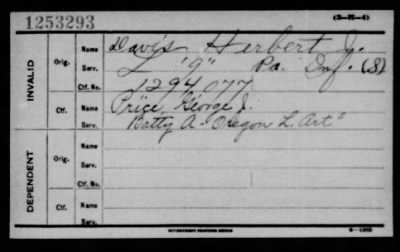 1253293 (3-77-4)
INVALID
Orig. Name Davis Herbert J.
Serv. L "9" Pa. Inf. (S)
Ctf. No. 1294077
Ctf. Name Price, George J.
Serv. Batty A - Oregon L. Art"
DEPENDENT
Orig. Name
Serv.
Ctf. No.
Ctf. Name
Serv.
GOVERNMENT PRINTING OFFICE